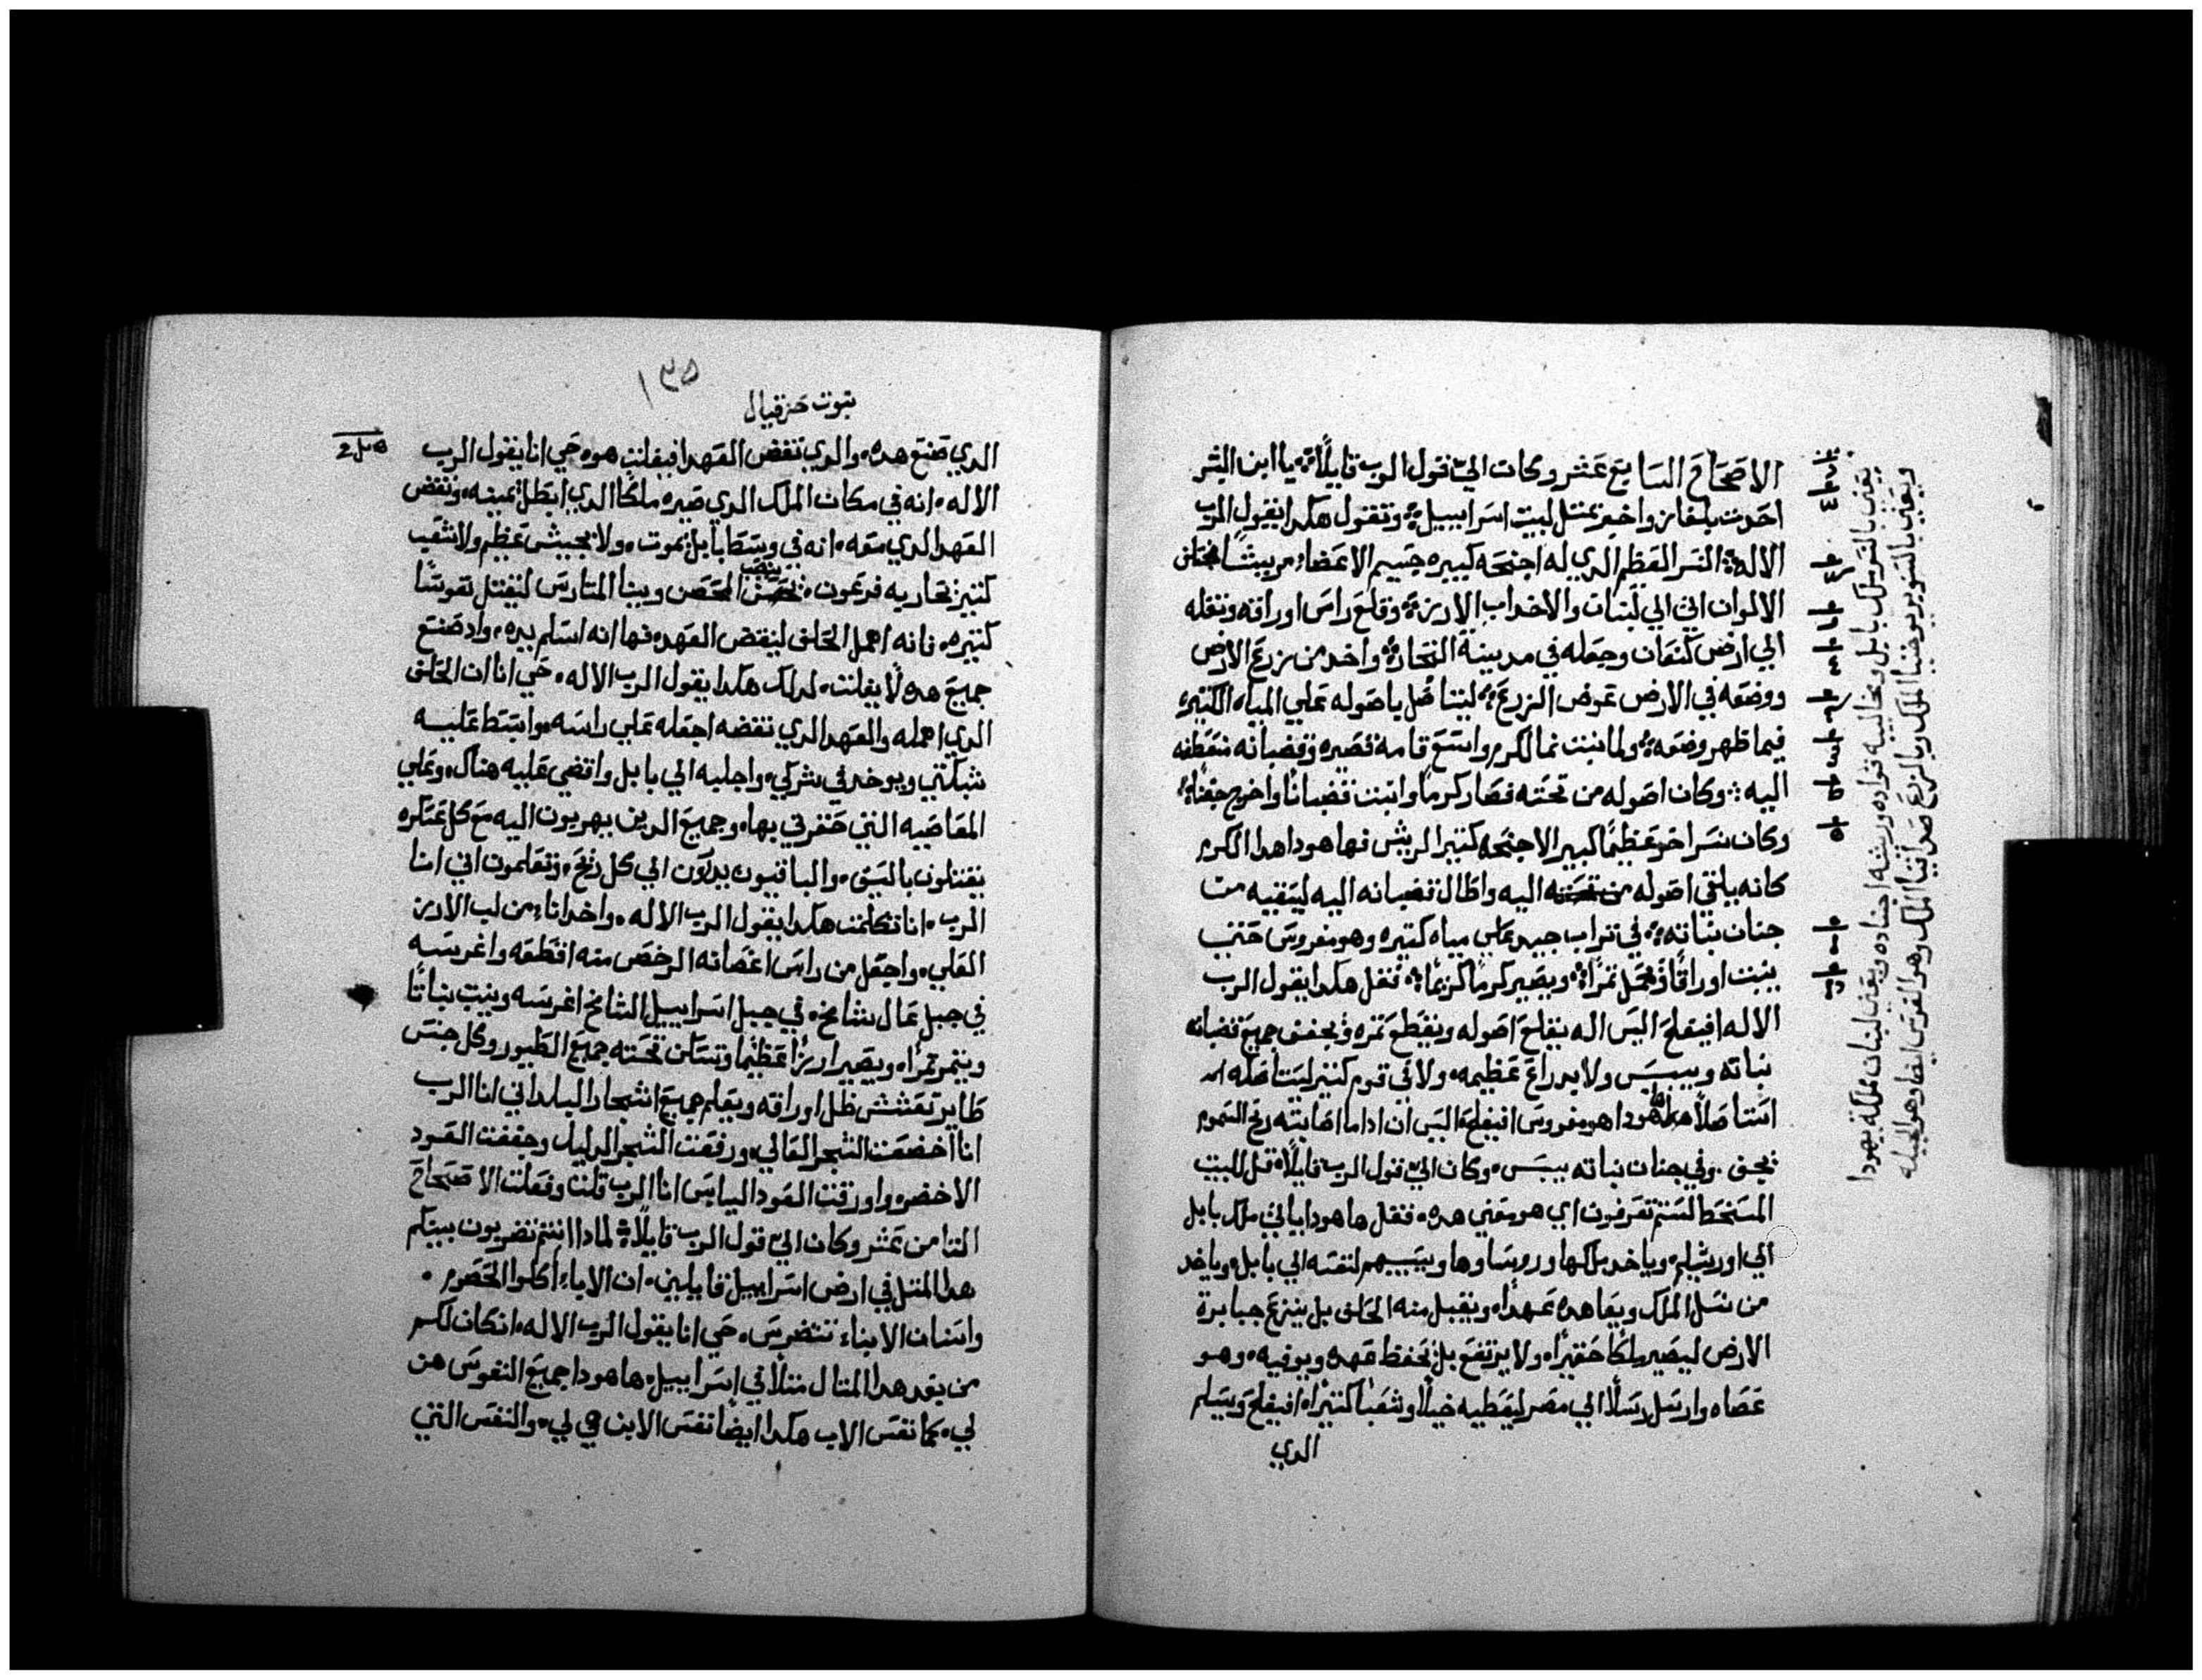 الاصحاح السابع عشر وكات الي قول الرب قايلًا يا ابن البشر
احدت بلغاز واخبر بمتل لبيت اسراييل وتقول هكدا يقول الرب
الاله النسر العظيم الدي له اجنحه كبيره جسيم الاعضا مريشا مختلف
الالوان اتي الي لبنان والاخداب الارز وقلع راس اوراقه ونقله
الي ارض كنعان وجعله في مدينة التجاره واخد من زرع الارض
ووضعه في الارض عوض الزرع ليتاصل ياصوله علي المياه الكتيره
فيما ظهر وضعه ولما نبت نما لكرم واسع قامة قصيره وقضبانه منعطفه
اليه وكان اصوله من تحته فصار كرمًا وانبت قضبانًا واخرج جفنا
وكان نسر اخر عظيمًا كبير الاجنحه كتير الريش فها هودا هدا الكرم
كانه يلقي اصوله من تحته اليه واطال قضبانه اليه ليسقيه من
جنان نباته في تراب جيد علي مياه كتيره وهو مغروس حتي
ينبت اوراقًا ويحمل تمرًا ويصير كرمًا كريمًا فقل هكدا يقول الرب
الاله افيفلح اليس اله يقلع اصوله ويقطع تمره ويجفف جميع قضبانه
نباته وييبس ولا بدراع عظيمه ولا في قوم كتير ليستاصله
استاصلًا هودا هو مغروس افيفلح اليس ان اداما اصابته ريح السموم
يجف وفي جنان نباته ييبس وكان الي قول الرب قايلًا قل للبيت
المسخط الستم تعرفون اي هو معني هده فقل ها هودا ياتي ملك بابل
الي اورشليم وياخد ملكها وروساوها ويسبيهم لنفسه الي بابل وياخد
من نسل الملك ويعاهده عهدًا ويقبل منه الحلف بل ينزع جبابرة
الارض ليصير ملكا حقيرًا ولا يرتفع بل يحفظ عهده ويوفيه وهو
عصاه وارسل رسلًا الي مصر ليعطيه خيلًا وشعبا كتيرًا افيفلح ويسلم
الدي
يعني بالنسر ملك بابل ومخاليبه قواده وريشه اجناده ويعني لبنان مملكة يهودا
ويعني بالصنوبر يوخنيا الملك وبالزرع صداقيا الملك وهو الغرس ايضا وهو الجبله
١٣٥
نبوت حزقيال
الدي صنع هده والدي نقض العهد افيفلت هو حي انا يقول الرب
الاله انه في مكان الملك الدي صيره ملكًا الدي ابطل يمينه ونقض
العهد الدي معه انه في وسط بابل يموت ولا بجيش عظيم ولا شعب
كتير يحاربه فرعون ينصب المحصن وبينا المتارس ليقتل نفوسًا
كتيره فانه اهمل الحلف لينقض العهد فها انه اسلم يده واد صنع
جميع هده لا يفلت لدلك هكدا يقول الرب الاله حي انا ان الحلف
الدي اهمله والعهد الدي نقضه اجعله علي راسه وابسط عليه
شبكتي ويوخد في شركي واجلبه الي بابل واقضي عليه هناك وعلي
المعاصيه التي حقرني بها وجميع الدين يهربون اليه مع كل عسكره
يقتلون بالسيف والباقيون يدرون الي كل ريح وتعلمون اني انا
الرب انا تكلمت هكدا يقول الرب الاله واخد انا من لب الارز
العلي واجعل من راس اغصانه الرخص منه اقطعه واغرسه
في جبل عال شامخ في جبل اسراييل الشامخ اغرسه وينبت نباتًا
ويتمر تمرًا ويصير ارزًا عظيمًا وتسكن تحته جميع الطيور وكل جنس
طاير تعشش ظل اوراقه ويعلم جميع اشجار البلد اني انا الرب
انا اخضعت الشجر العالي ورفعت الشجر الدليل وجففت العود
الاخضر واورقت العود اليابس انا الرب قلت وفعلت الاصحاح
التامن عشر وكان الي قول الرب قايلًا لمادا انتم تضربون بينكم
هدا المتل في ارض اسراييل قايلين ان الاباء اكلوا الحصرم
واسنان الابناء تتضرس حي انا يقول الرب الاله ان كان لكم
من بعد هدا المتال متلًا في اسراييل ها هودا جميع النفوس هن
لي كما نفس الاب هكدا ايضًا نفس الابن هي لي والنفس التي